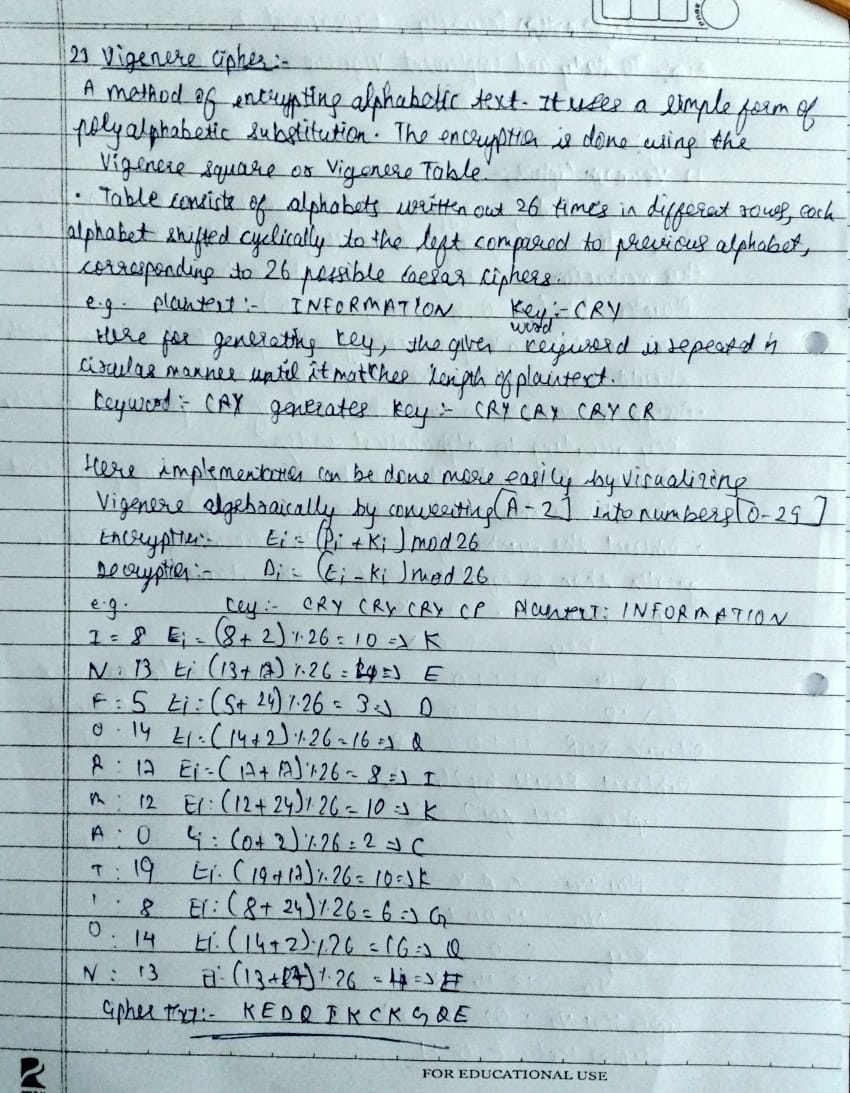 2) Vigenere Cipher:-
A method of encrypting alphabetic text. It uses a simple form of
polyalphabetic substitution. The encryption is done using the
Vigenere square or Vigenere Table.
• Table consists of alphabets written out 26 times in different rows, each
alphabet shifted cyclically to the left compared to previous alphabet,
corresponding to 26 possible caesar ciphers.
e.g. plantext:- INFORMATION Key:- CRY
word
Here for generating key, the given keyword is repeated in
circular manner until it matches length of plaintext.
Keyword:- CRY generates key:- CRY CRY CRY CR
Here implementation can be done more easily by visualizing
Vigenere algebraically by converting [A-Z] into numbers [0-25]
Encryption:- Ei = (Pi + Ki) mod 26
Decryption:- Di = (Ei - Ki) mod 26
e.g. key:- CRY CRY CRY CR Plantext: INFORMATION
I = 8 Ei = (8+2)%26 = 10 => K
N : 13 Ei (13+17)%26 = => E
F : 5 Ei = (5+24)%26 = 3 => D
O . 14 Ei = (14+2)%26 = 16 => Q
R : 17 Ei = (17+17)%26 = 8 => I
M : 12 Ei : (12+24)%26 = 10 => K
A : 0 Ei : (0+2)%26 = 2 => C
T : 19 Ei . (19+17)%26 = 10 => K
I . 8 Ei : (8+24)%26 = 6 => G
O : 14 Ei . (14+2)%26 = 16 => Q
N : 13 Ei : (13+17)%26 = => E
Cipher Txt:- KEDQIKCKGQE
FOR EDUCATIONAL USE